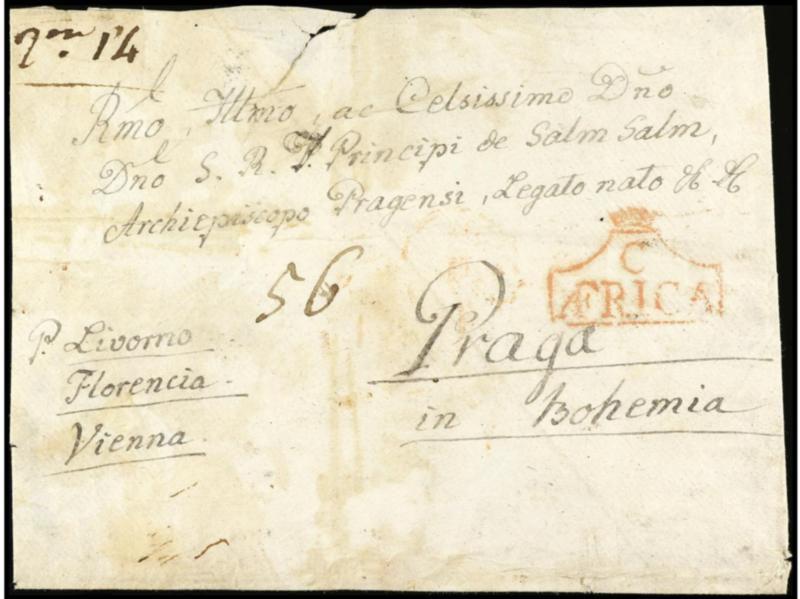 14
Rmo, Illmo, ac Celsissimo Dño
Dño S. R. I. Principi de Salm Salm,
Archiepiscopo Pragensi, Legato nato & &
C
ÆFRICA
56
Praga
in Bohemia
P. Livorno
Florencia
Vienna